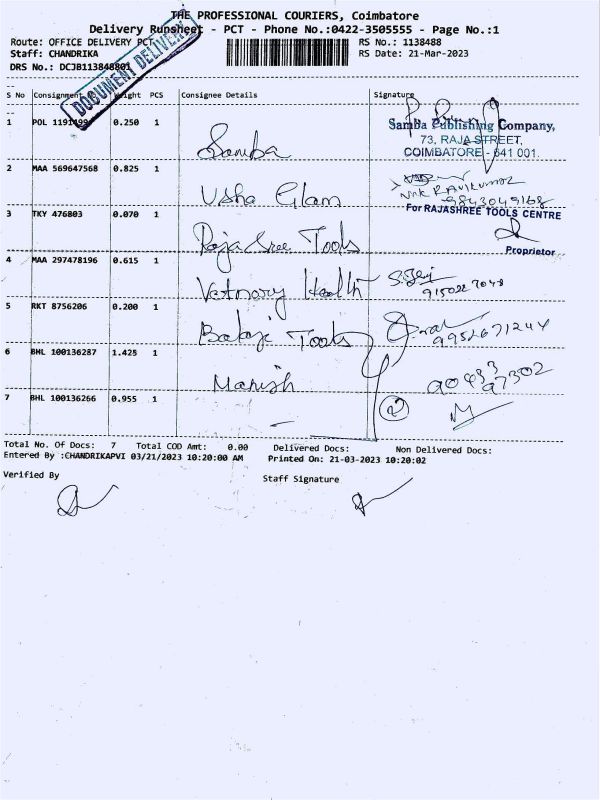 THE PROFESSIONAL COURIERS, Coimbatore
Delivery Runsheet - PCT - Phone No.:0422-3505555 - Page No.:1
Route: OFFICE DELIVERY PCT RS No.: 1138488
Staff: CHANDRIKA RS Date: 21-Mar-2023
DRS No.: DCJB113848801
DOCUMENT DELIVERY
S No Consignment Weight PCS Consignee Details Signature
1 POL 1191499 0.250 1 Samba
Samba Publishing Company,
73, RAJA STREET,
COIMBATORE - 641 001.
2 MAA 569647568 0.825 1 Usha Glam
RAVIKUMAR
9843049168
3 TKY 476803 0.070 1 Raja Sree Tools
For RAJASHREE TOOLS CENTRE
Proprietor
4 MAA 297478196 0.615 1 Vetnary Health
5 RKT 8756206 0.200 1 Balaji Tools 9952671244
6 BHL 100136287 1.425 1 Manish 90433 97302
7 BHL 100136266 0.955 1 2
Total No. Of Docs: 7 Total COD Amt: 0.00 Delivered Docs: Non Delivered Docs:
Entered By :CHANDRIKAPVI 03/21/2023 10:20:00 AM Printed On: 21-03-2023 10:20:02
Verified By Staff Signature